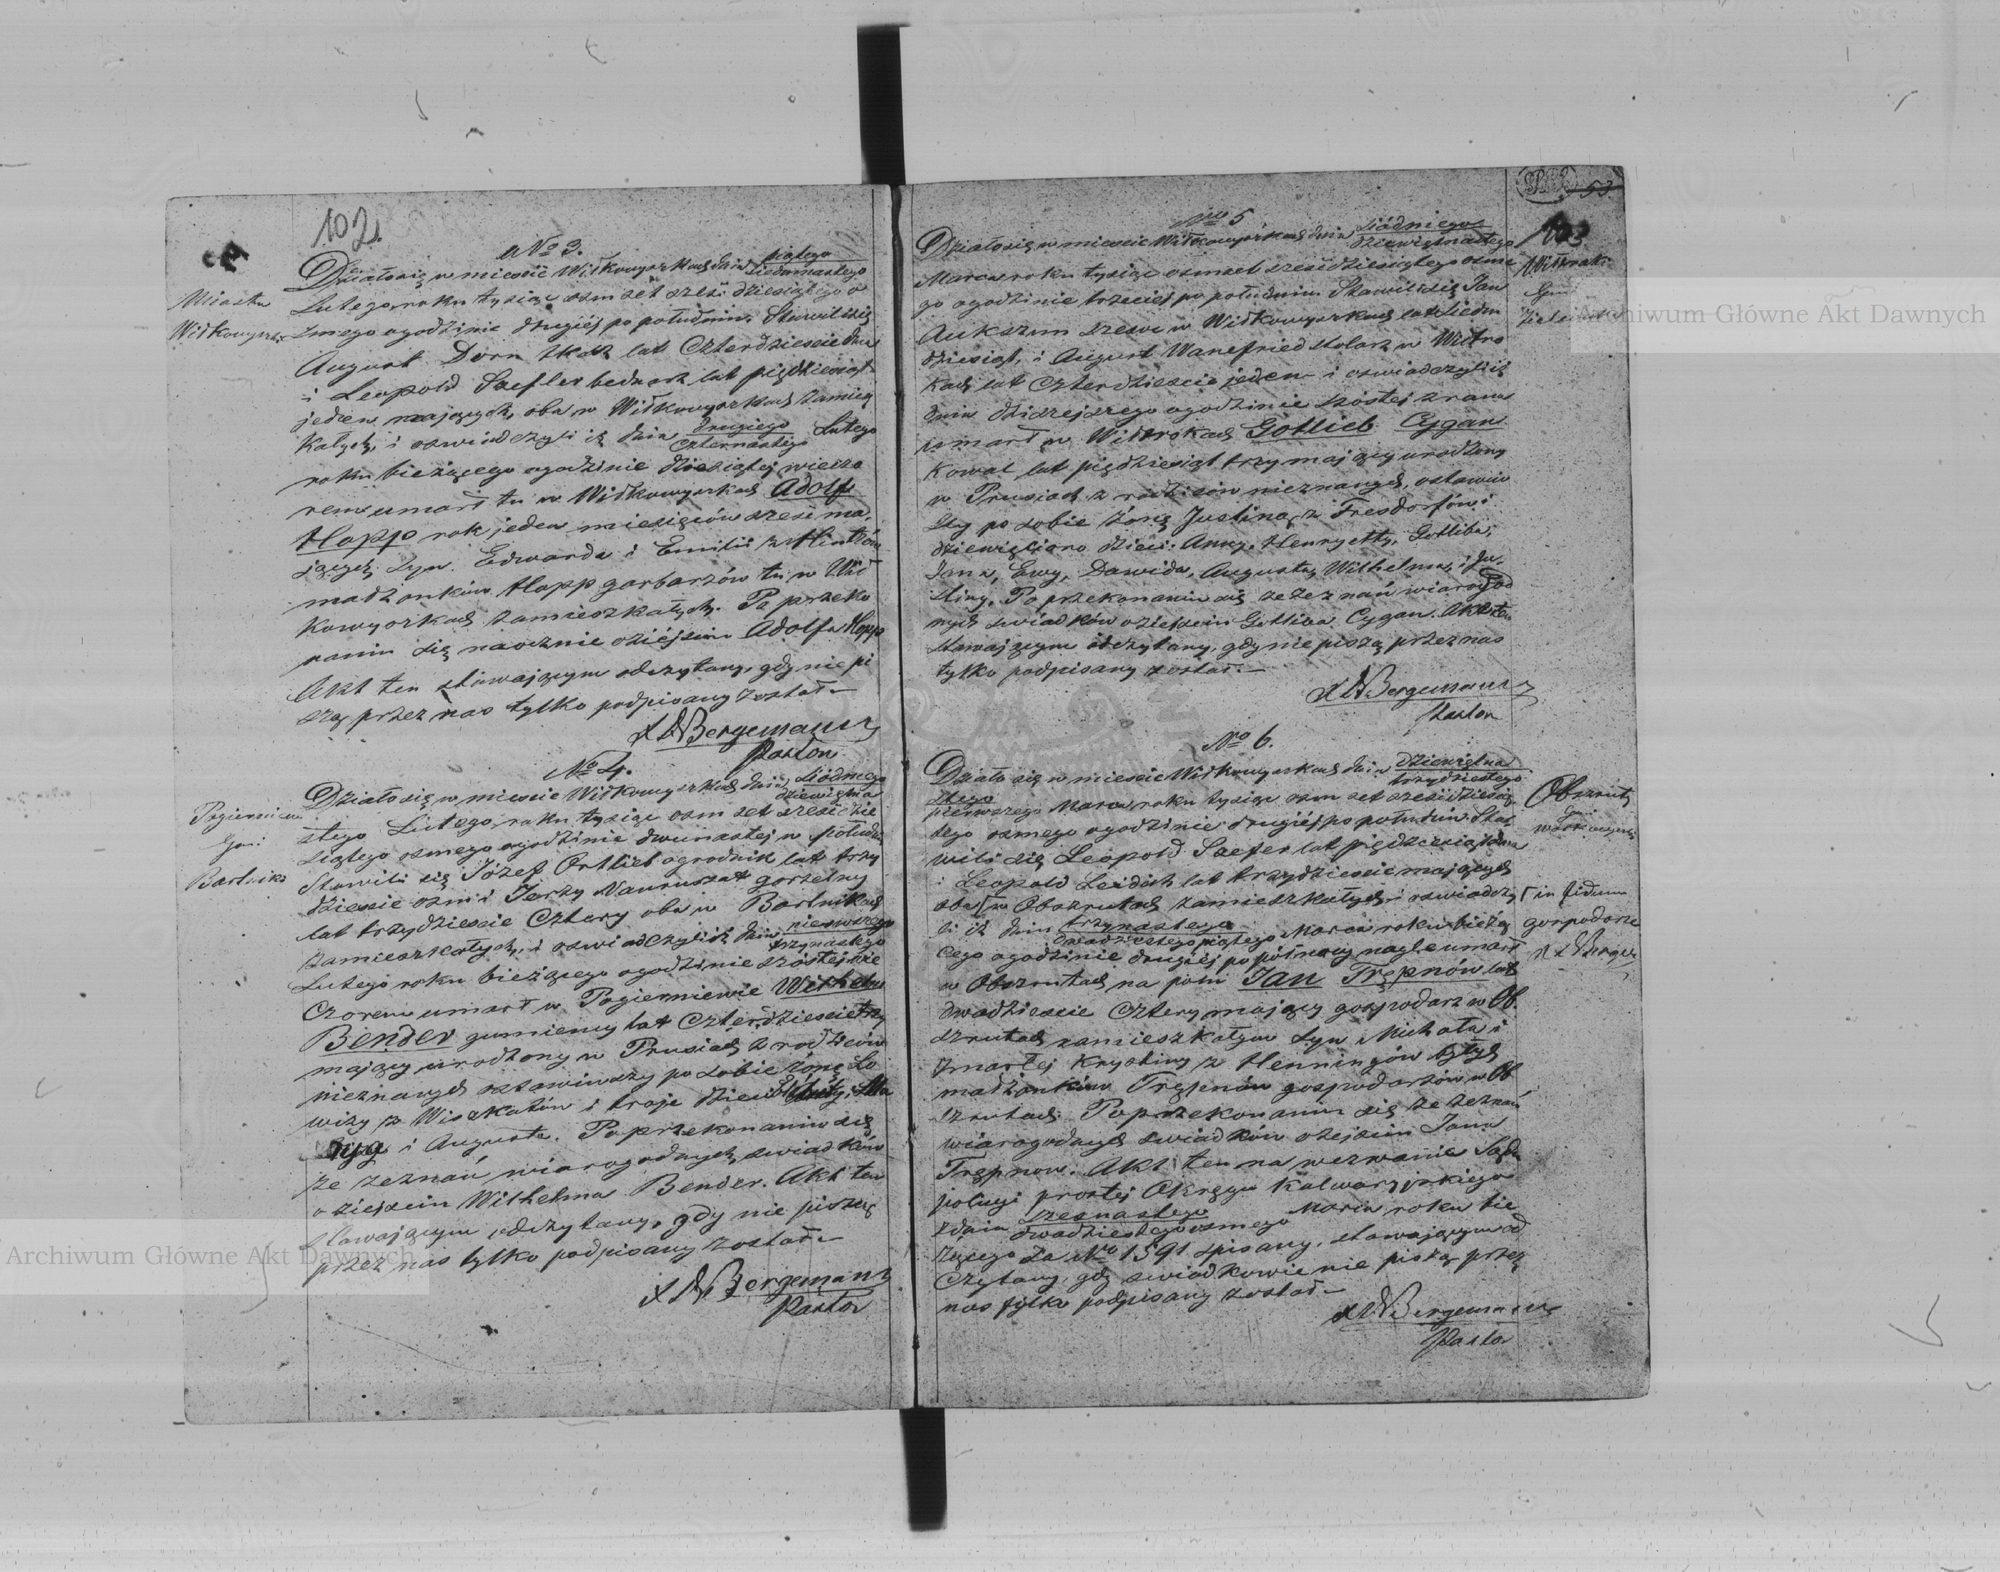 102.
Miasto
Wiłkowyszki
No 3.
Działo się w mieście Wiłkowyszkach dnia piątego / siedemnastego
Lutego roku tysiąc osm set sześć dziesiątego o
smego o godzinie drugiéj po południu. Stawili się
August Dorn tkacz lat czterdzieście dwa
i Leopold Szefler bednarz lat pięćdziesiąt
jeden mających, oba w Wiłkowyszkach zamiesz
kałych, i oświadczyli iż dnia drugiego / czternastego Lutego
roku bieżącego o godzinie dziesiątej wieczo
rem umarł tu w Wiłkowyszkach Adolf
Happ rok jeden miesięców sześć ma
jący, syn Edwarda i Emilii z
małżonków Happ garbarzów tu w Wił
kowyszkach zamieszkałych. Po przeko
naniu się naocznie o ziéjściu Adolfa Happ
Akt ten stawającym odczytany, gdy nie pi
szą przez nas tylko podpisany został.
Bergemann
Pastor
Pogiermiew
Gmi
Bartniki
No 4.
Działo się w mieście Wiłkowyszkach dnia siódmego / dziewiętna
stego Lutego roku tysiąc osm set sześć dzie
siątego osmego o godzinie dwunastej w połudn
Stawili się Józef Ortlieb ogrodnik lat trzy
dzieście osm i Jerzy Nauruszat gorzelny
lat trzydzieście cztery oba w Bartnikach
zamieszkałych, i oświadczyli iż dnia pierwszego / trzynastego
Lutego roku bieżącego o godzinie szóstej wie
czorem umarł w Pogierniewie Wilhelm
Bender gumienny lat czterdzieście trzy
mający urodzony w Prusiach z rodziców
nieznanych zostawiwszy po sobie żonę Lo
wizy z Wiszkatów i troje dzieci
i Augusta. Po przekonaniu się
ze zeznań wiarogodnych swiadków
o ziejściu Wilhelma Bender. Akt ten
stawającym odczytany, gdy nie piszą
przez nas tylko podpisany został.
Bergemann
Pastor
53
103
No 5
Działo się w mieście Wiłkowyszkach dnia siódmego / dziewiętnastego
Marca roku tysiąc osmset sześćdziesiątego osme
go o godzinie trzeciej po południu Stawili się Jan
Aukszun szewc w Wiłkowyszkach lat siedm
dziesiąt, i August Wanefried stolarz w Witro
kach lat czterdzieście jeden i oświadczyli iż
dnia dzisiejszego o godzinie szóstej z rana
umarł w Witrokach Gotlieb Cygan
kowal lat pięćdziesiąt trzy mający urodzony
w Prusiach z rodziców nieznanych, ostawiw
szy po sobie żonę Justinę z Fresdorfów i
dziewięcioro dzieci: Anny, Henryetty, Gotliba,
Jana, Ewy, Dawida, Augusta, Wilhelma, i Ju
stiny. Po przekonaniu się ze zeznań wiarogod
nych swiadków o ziejściu Gotliba Cygan. Akt ten
stawającym odczytany, gdy nie piszą przez nas
tylko podpisany został.
Bergemann
Pastor
No 6.
Działo się w mieście Wiłkowyszkach dnia dziewiętna / trzydziestego
stego / pierwszego Marca roku tysiąc osm set sześćdziesią
tego osmego o godzinie drugiéj po południu. Sta
wili się Leopold Szefer lat pięćdziesiąt dwa
i Leopold Leidich lat trzydzieście mających
oba w Obszrutach zamieszkałych i oswiadczy
li iż dnia trzynastego / dwudziestego piątego Marca roku bieżą
cego o godzinie drugiéj po północy nagle umarł
w Obszrutach na polu Jan Trępnów lat
dwadzieście cztery mający gospodarz w Ob
szrutach zamieszkałym syn Michała i
zmarłej Krystiny z Henningów byłych
małżonków Trępnów gospodarzów w Ob
szrutach. Po przekonaniu się ze zeznań
wiarogodnych swiadków o ziejściu Jana
Trępnow. Akt ten na wezwanie Sądu
policyi prostej Okręgu Kalwaryjskiego
z dnia szesnastego / dwudziestego osmego Marca roku bie
żącego za No 1591 spisany, stawającym od
czytany, gdy swiadkowie nie piszą przez
nas tylko podpisany został.
Bergemann
Pastor
Obszruty
Gmi
in fidem
gospodarze
Archiwum Główne Akt Dawnych
Archiwum Główne Akt Dawnych